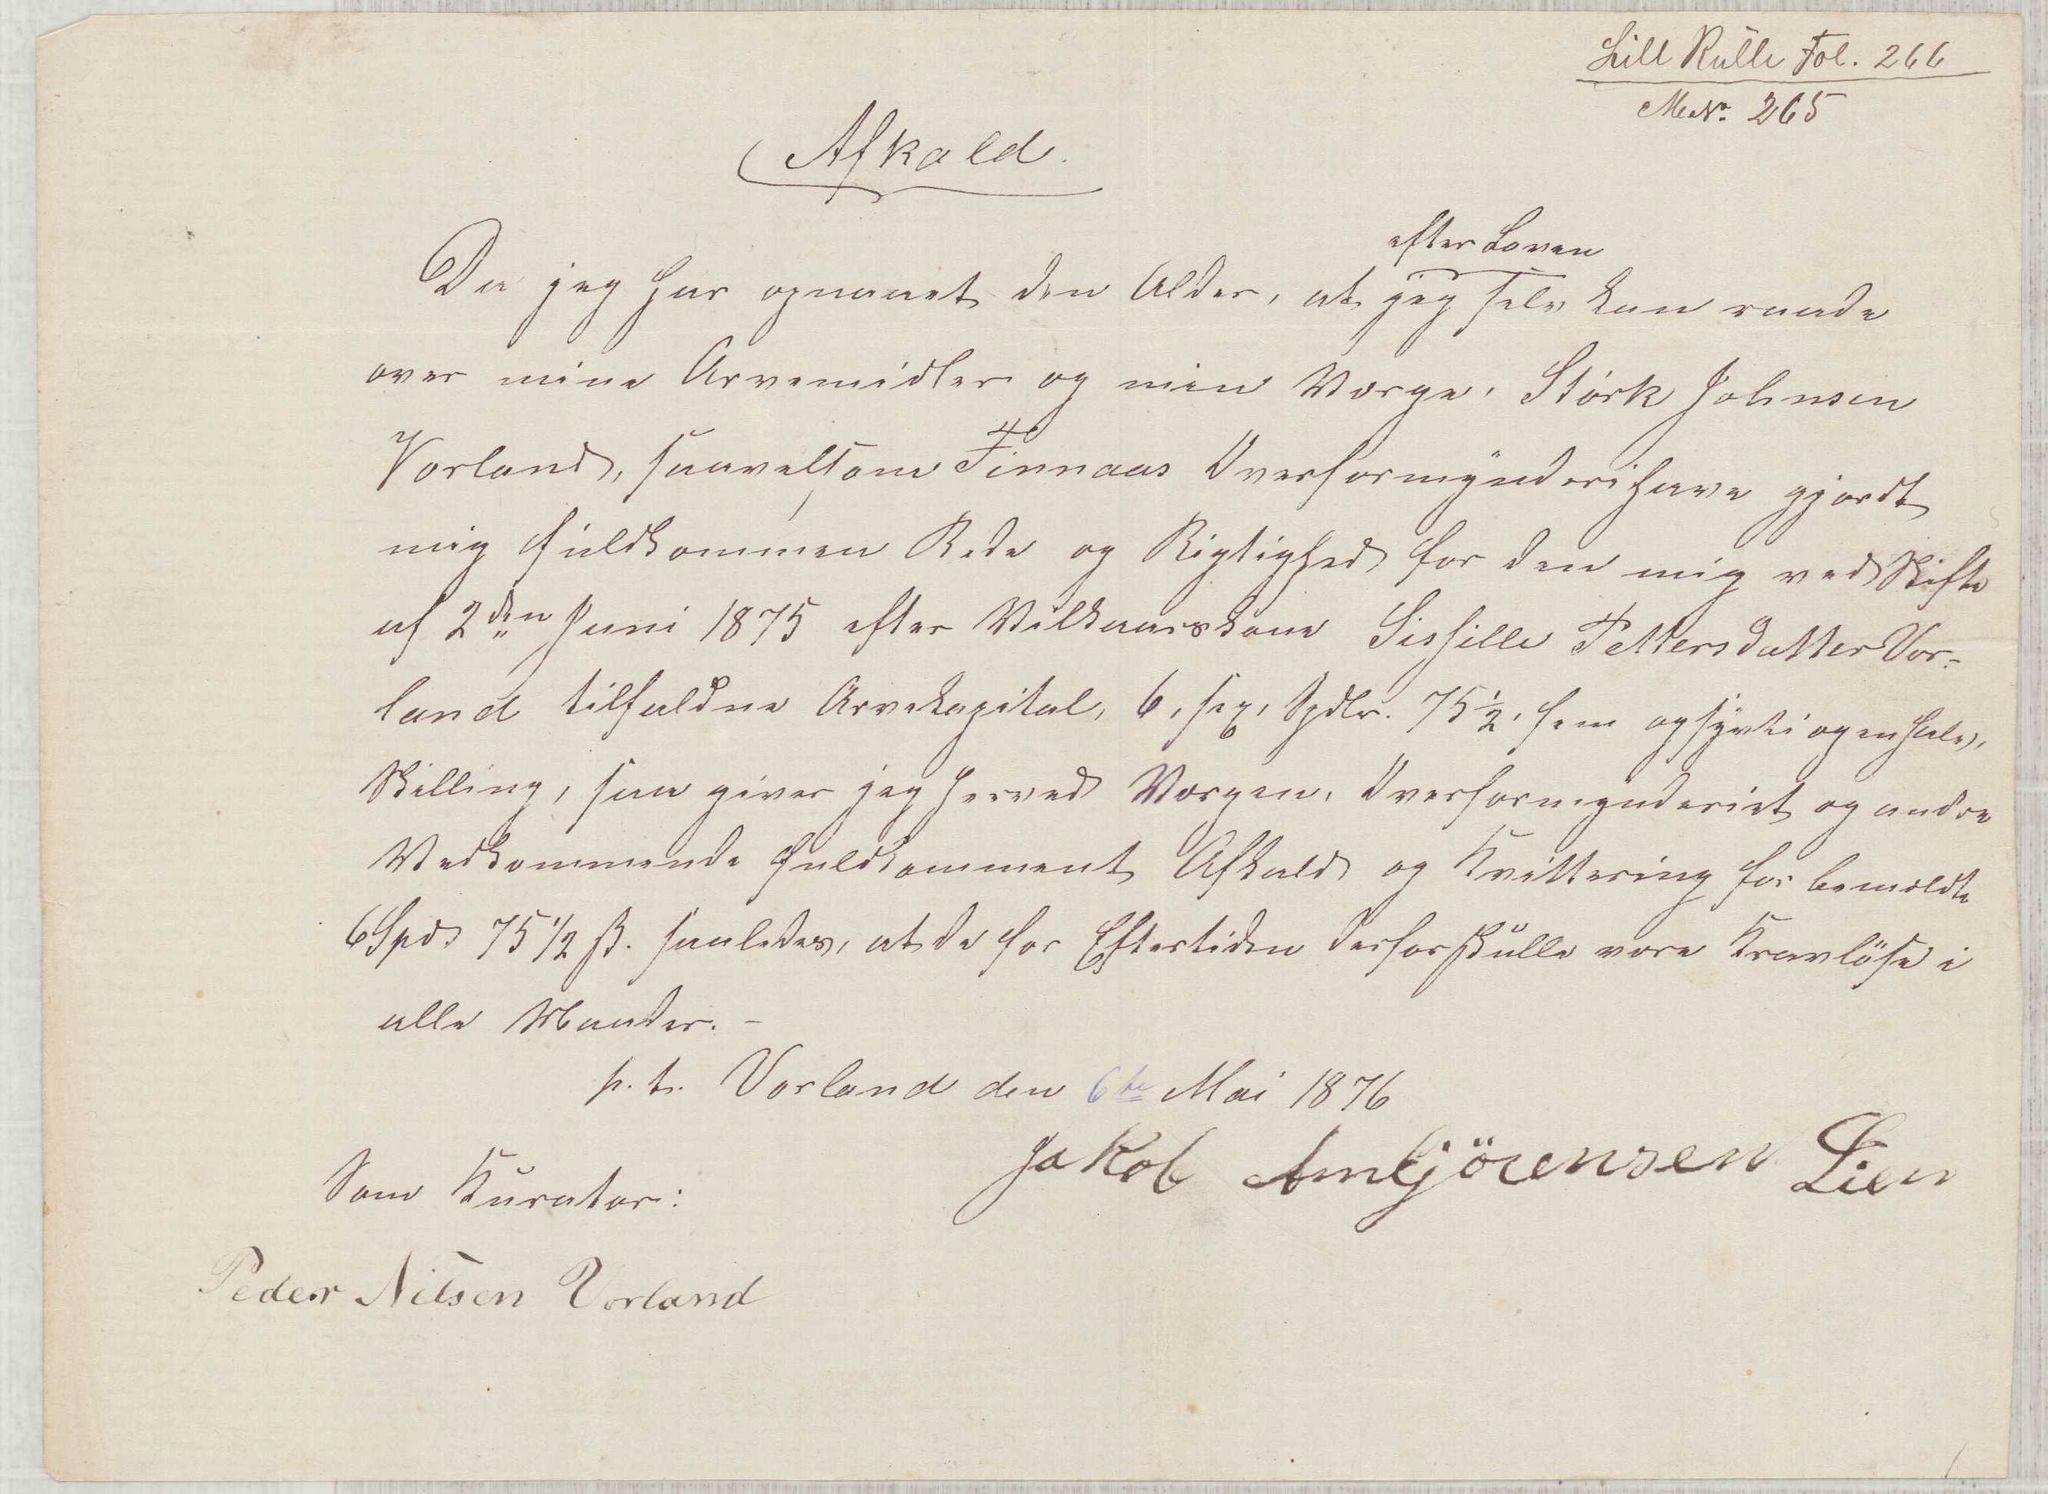 Lill Rulle Fol. 266
M No. 265
Afkald.
efter Loven
Da jeg har opnaaet den Alder, at jeg selv kan raade
over mine Arvemidler og min Værge, Störk Johnsen
Vorland, saavelsom Finnaas Overformynderi have gjordt
mig fuldkommen Rede og Rigtighed for den mig ved Skifte
af 2den Juni 1875 efter Vilkaarskone Sissille PettersdatterVor-
land tilfaldne Arvekapital, 6, sex, Spdlr. 75½, fem og sytti og en halv,
Skilling, saa giver jeg herved Værgen, Overformynderiet og andre
Vedkommende fuldkomment Afkald og Kvittering for bemeldte
6 Spd 75 1/2 ß. saaledes, at de for Eftertiden derfor skulle være Kravlöse i
alle Maader. –
p. t. Vorland den 6te Mai 1876
Jakob Ambjörensen Lien
Som Kurator:
Peder Nilsen Vorland